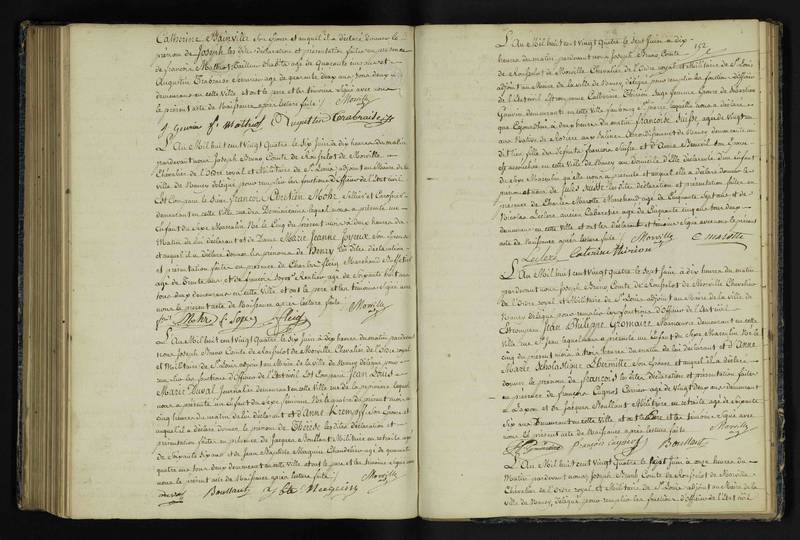 Catherine Bainville son Epouse et auquel il a déclaré donner le
prénom de Joseph les dites déclaration et présentation faites en présence
de françois Mathiot Tailleur d'habits agé de Quarante cinq ans et
Augustin Trabraize Ouvrier agé de quarante deux ans tous deux
demeurans en cette Ville et ont le pere et les témoins signé avec nous
le présent acte de Naissance après lecture faite /. Morville
f. Mathiot Augustin
L'An Mil huit cent Vingt Quatre le Six Juin à dix heures du matin
pardevant nous Joseph Bruno Comte de Rosselot de Morville
Chevalier de l'Ordre royal et Militaire de St Louis adjoint au Maire de la
ville de Nancy délégué pour remplir les fonctions d'officier de l'état civil
Est Comparu le Sieur françois Chrétien Mohr Sellier et Carossier
demeurant en cette Ville rue des Dominicains lequel nous a présenté un
Enfant du Sexe Masculin Né le Cinq du présent mois à Deux heures du
Matin de lui déclarant et de Dame Marie Jeanne Joyeux Son Epouse
et auquel il a déclaré donner les prénoms de Henry les dites déclaration
et présentation faites en présence de Charles fleig Marchand
agé de Trente ans et de françois Soyer Rentier agé de Soixante huit ans
tous deux demeurans en cette Ville et ont le pere et les témoins signé avec
nous le présent acte de Naissance après lecture faite /. Morville
Mohr fleig
L'An Mil huit cent Vingt Quatre le Six Juin à dix heures du matin pardevant
nous Joseph Bruno Comte de Rosselot de Morville Chevalier de l'Ordre royal
et Militaire de St Louis adjoint au Maire de la Ville de Nancy délégué pour
remplir les fonctions d'Officier de l'état civil Est Comparu Jean Louis
Marie Duval Journalier demeurant en cette Ville rue de la pépinière lequel
nous a présenté un Enfant du Sexe féminin Né le quatre du présent mois à
Cinq heures du matin de lui déclarant et d'Anne Krempff Son Epouse et
auquel il a déclaré donner le prénom de Thérèse les dites déclaration et
présentation faites en présence de Jacques Boullaut Militaire en retraite agé
de Soixante Six ans et de Jean Baptiste Mengin Chandelier agé de quarante
quatre ans tous deux demeurans en cette Ville et ont le pere et les témoins signé avec
nous le présent acte de Naissance après lecture faite /. Morville
Boullaut
152
L'An Mil huit cent Vingt Quatre le Sept Juin à dix
heures du matin pardevant nous Joseph Bruno Comte
de Rosselot de Morville Chevalier de l'Ordre royal et Militaire de St Louis
adjoint au Maire de la ville de Nancy délégué pour remplir les fonctions d'officier
de l'état civil Est Comparue Catherine Thirion Sage femme Epouse de Sébastien
demeurant en cette ville faubourg St Pierre laquelle nous a déclaré
à Deux heures du matin françoise Suisse agée de Vingt
ans Native de Rosière aux Salines Arrondissement de Nancy
dit lieu fille des défunts françois Suisse et d'Anne
est accouchée en cette Ville de Nancy au domicile d'elle déclarante d'un Enfant
du Sexe Masculin qu'elle nous a présenté et auquel elle a déclaré donner le
prénom et nom de Jules Suisse les dites déclaration et présentation faites en
présence de Charles Marotte Marchand agé de Cinquante Sept ans et de
Nicolas Leclerc ancien Cabaretier agé de Cinquante Cinq ans tous deux
demeurans en cette ville et ont les déclarante et témoins signé avec nous le présent
acte de Naissance après lecture faite /. Morville C marotte
Leclerc Caterine thirion
L'An Mil huit cent Vingt Quatre le Sept Juin à dix heures du matin
pardevant nous Joseph Bruno Comte de Rosselot de Morville Chevalier
de l'Ordre royal et Militaire de St Louis adjoint au Maire de la Ville
de Nancy délégué pour remplir les fonctions d'Officier de l'état civil
Est comparu Jean Philippe Manoeuvre demeurant en cette
Ville rue St Jean lequel nous a présenté un Enfant du Sexe Masculin Né le
Cinq du présent mois à trois heures du matin de lui déclarant et d'Anne
Marie Scholastique Lhermitte Son Epouse et auquel il a déclaré
donner le prénom de françois les dites déclaration et présentation faites
en présence de françois Cugnot Carrier agé de Vingt deux ans demeurant
à Laxou et de Jacques Boullaut Militaire en retraite agé de Soixante
Six ans demeurant en cette ville et ont le Pere et les témoins signé avec
nous le présent acte de Naissance après lecture faite Morville
françois Cugnot Boullaut
L'An Mil huit cent Vingt Quatre le Sept Juin à onze heures du
Matin pardevant nous Joseph Bruno Comte de Rosselot de Morville
Chevalier de l'Ordre royal et Militaire de St Louis adjoint au Maire de la
Ville de Nancy délégué pour remplir les fonctions d'officier de l'état civil